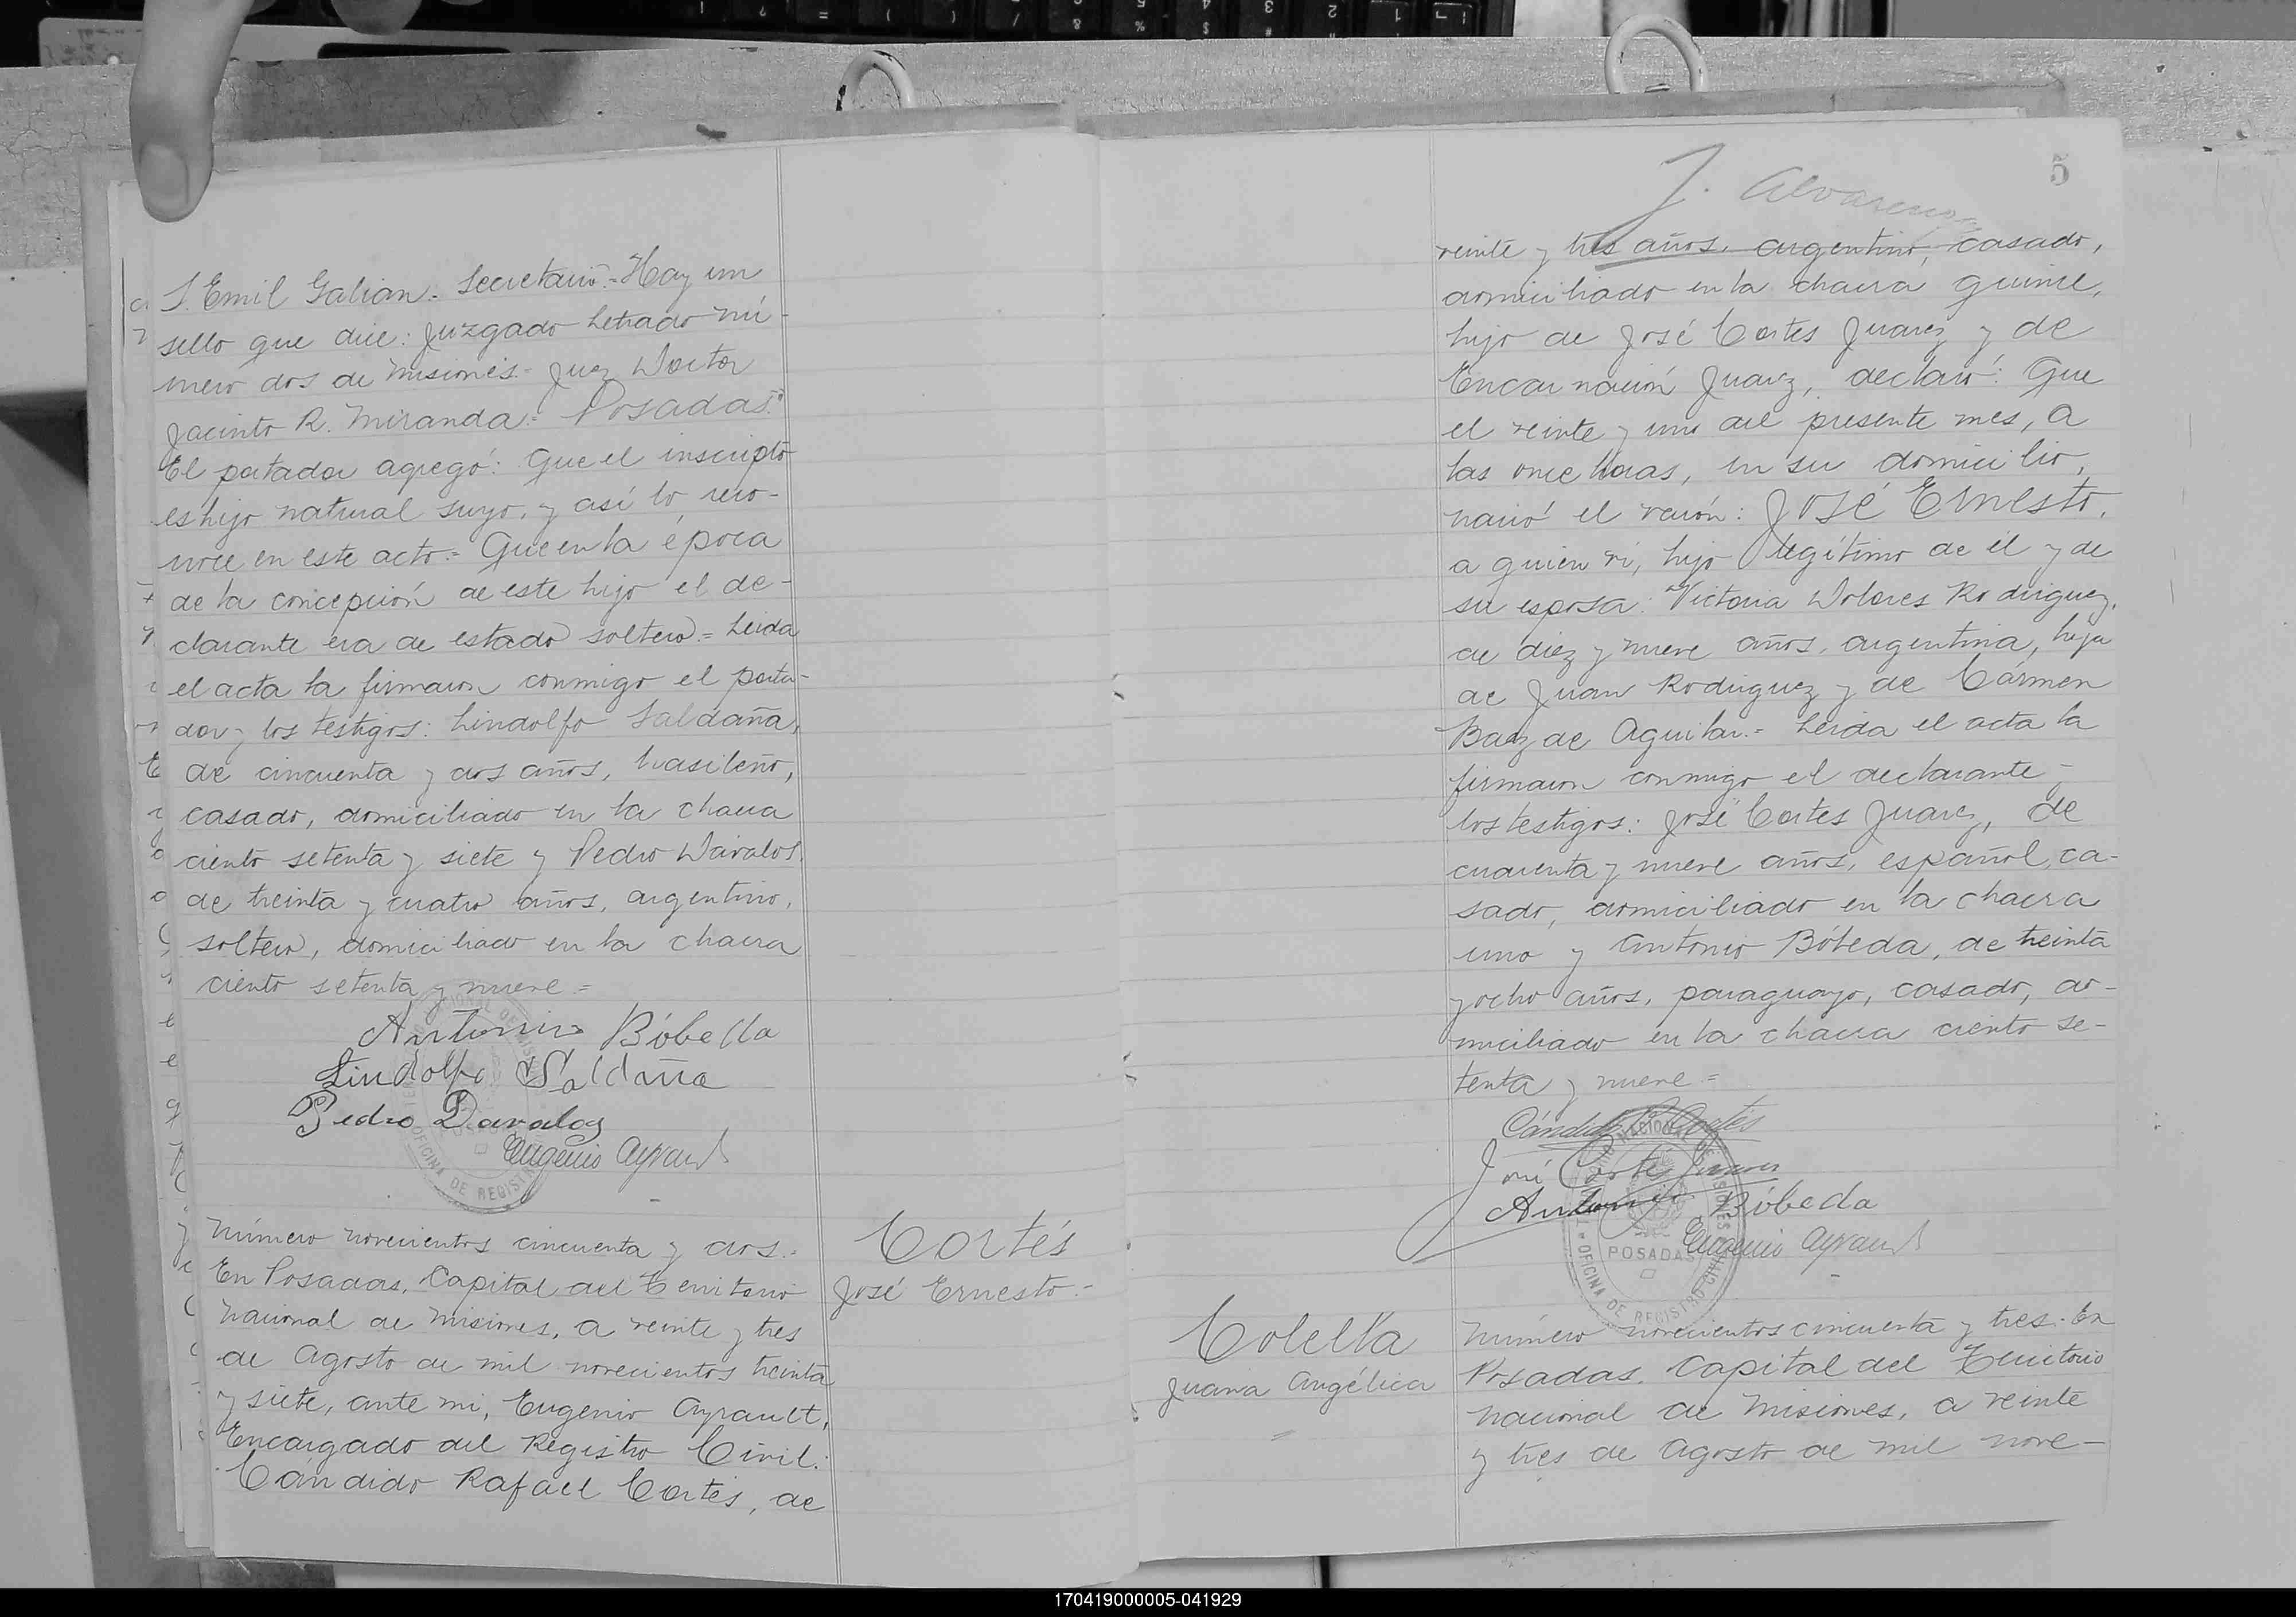 S. Emil Galian.- Secretario.- Hay un
sello que dice: Juzgado Letrado nú-
mero dos de Misiones.- Juez Doctor
Jacinto R. Miranda.- Posadas."
El portador agregó: Que el inscripto
es hijo natural suyo, y así lo reco-
noce en este acto.- Que en la época
de la concepción de este hijo el de-
clarante era de estado soltero.- Leida
el acta la firmaron conmigo el porta-
dor y los testigos: Lindolfo Saldaña,
de cincuenta y dos años, brasileño,
casado, domiciliado en la chacra
ciento setenta y siete y Pedro Dávalos,
de treinta y cuatro años, argentino,
soltero, domiciliado en la chacra
ciento setenta y nueve.=
Antonio Bóbeda
Lindolfo Saldaña
Pedro Davalos
Eugenio Ayrault
Número novecientos cincuenta y dos.-
En Posadas, Capital del Territorio
Nacional de Misiones, a veinte y tres
de Agosto de mil novecientos treinta
y siete, ante mi, Eugenio Ayrault,
Encargado del Registro Civil:
Cándido Rafael Cortés, de
Cortés
José Ernesto.-
5
J. Alvarenga
veinte y tres años, argentino, casado,
domiciliado en la chacra quince,
hijo de José Cortes Juarez y de
Encarnación Juarez, declaró: Que
el veinte y uno del presente mes, a
las once horas, en su domicilio,
nació el varón: José Ernesto,
a quien vi, hijo legítimo de él y de
su esposa: Victoria Dolores Rodriguez,
de diez y nueve años, argentina, hija
de Juan Rodriguez y de Cármen
Baez de Aguilar.- Leida el acta la
firmaron conmigo el declarante y
los testigos: José Cortes Juarez, de
cuarenta y nueve años, español, ca-
sado, domiciliado en la chacra
uno y Antonio Bóbeda, de treinta
y ocho años, paraguayo, casado, do-
miciliado en la chacra ciento se-
tenta y nueve.=
Cándido R. Cortés
José Cortes Juarez
Antonio Bóbeda
Eugenio Ayrault
TERRITORIO NACIONAL DE MISIONES
POSADAS
OFICINA DE REGISTRO CIVIL
Colella
Juana Angélica
Número novecientos cincuenta y tres.- En
Posadas, Capital del Territorio
Nacional de Misiones, a veinte
y tres de Agosto de mil nove-
170419000005-041929